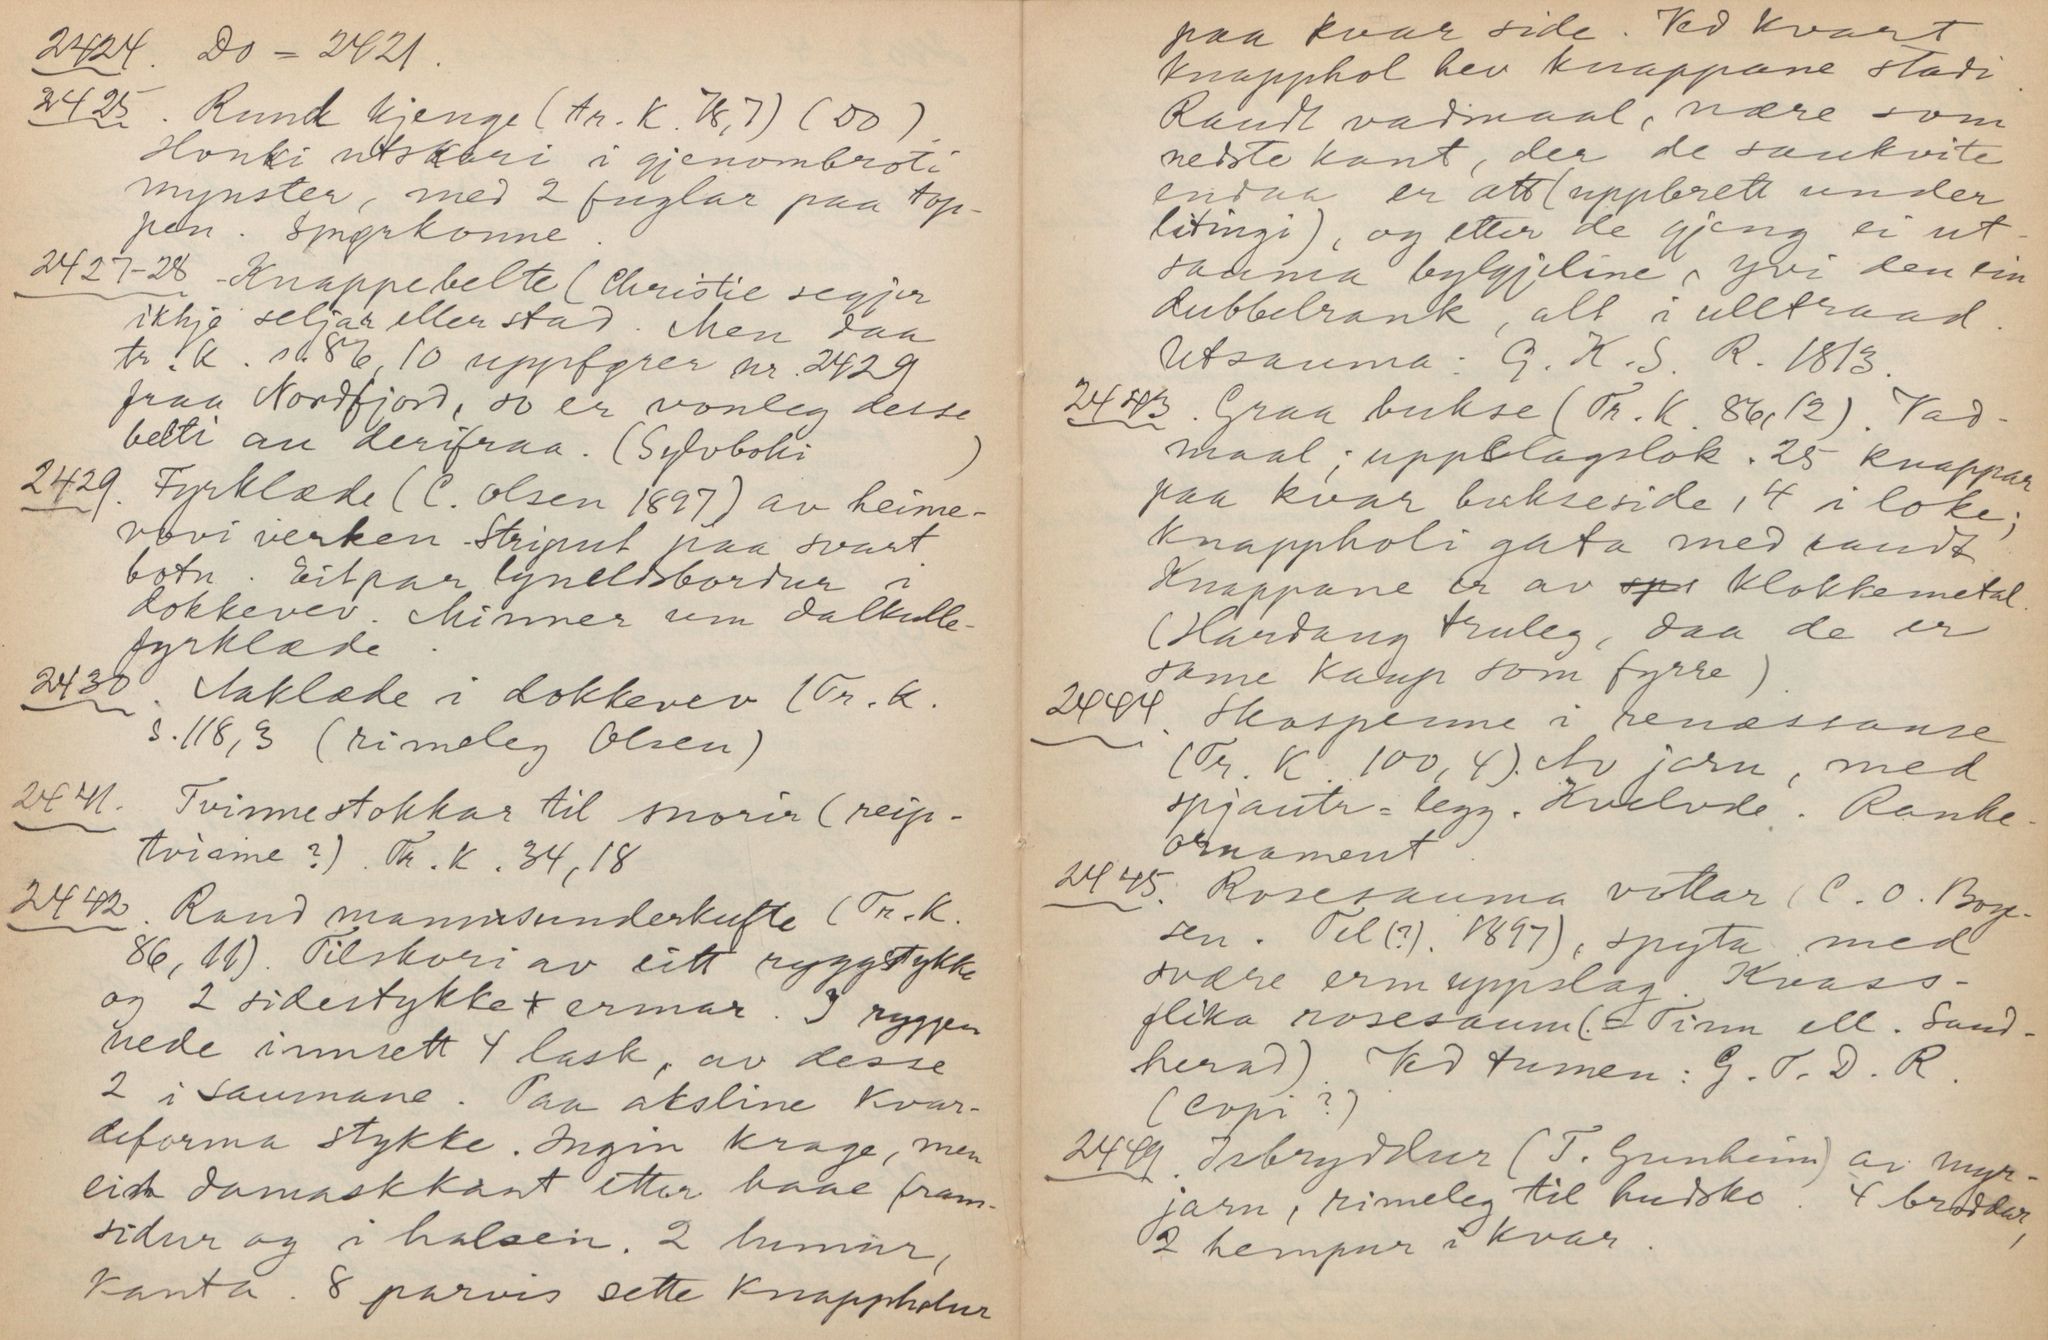 2424. Do = 2421.
2425. Rund kjenge (tr. K. 78,7) (Do)
Honki utskori i gjenombroti
mynster, med 2 fuglar paa top-
pen. Spyrkonne.
2427-28 - Knappebelte (Christie segjer
ikkje seljar eller stad. Men daa
tr. K. s. 86, 10 uppfyrer nr. 2429
fraa Nordfjord, so er vonleg desse
belti au derifraa. (Sylvboki )
2429. Fyrklæde (C. Olsen 1897) av heime-
vovi verken. Striput paa svart
botn. Eit par tyneldsbordur i
dokkevev. Minner um dalkulle-
fyrklæde.
2430. Aaklæde i dokkevev (Tr. K.
s. 118, 3 (rimeleg Olsen)
2441. Tvinnestokkar til snorir (reip-
tvinne?). Tr. K. 34, 18
2442. Raud mannsunderkufte (Tr. K.
86, 11). Tilskori av eitt ryggstykke
og 2 sidestykke + ermar. I ryggen
nede innsett 4 lask, av desse
2 i saumane. Paa aksline kvar-
deforma stykke. Ingin krage, men
ein damaskkant etter baae fram-
sidur og i halsen. 2 lumur,
kanta. 8 parvis sette knapphólur
paa kvar side. Ved kvart
knapphol hev knappane stadi.
Raudt vadmaal, nære som
nedste kant, der de saukvite
endaa er att (uppbrett under
litingi), og etter de gjeng ei ut-
sauma bylgjeline, yvi den ein
dubbelrank, alt i ulltraad.
Utsauma: G. K. S. R. 1813.
2443. Graa bukse (Tr. K. 86, 12). Vad-
maal; uppslagslok. 25 knappar
paa kvar bukseside, 4 i loke;
knappholi gata med raudt
Knappane er av spr klokkemetal.
(Hardang truleg, daa de er
same kaup som fyrre)
2444. Skospenne i renæssanse
(Tr. K. 100, 4). Av jarn, med
spjautr = legg. Kvelvde. Ranke-
ornament.
2445. Rosesauma vottar (C. O. Boye-
sen. Tel(?). 1897), spyta med
svære ermuppslag. Kvass-
flika rosesaum (= Tinn ell. Saud-
herad). Ved tumen: G. T. D. R.
(Copi?)
2449. Isbryddur (T. Gunheim) av myr-
jarn, rimeleg til hudsko. 4 broddar,
2 hempur i kvar.